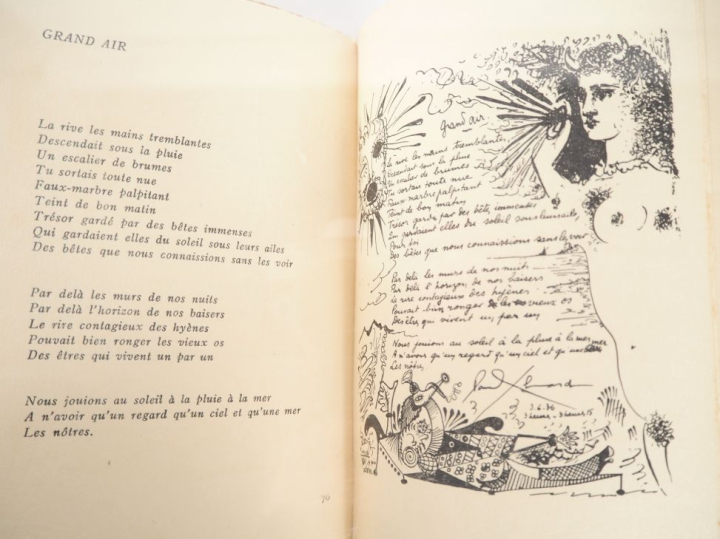 GRAND AIR
La rive les mains tremblantes
Descendait sous la pluie
Un escalier de brumes
Tu sortais toute nue
Faux-marbre palpitant
Teint de bon matin
Trésor gardé par des bêtes immenses
Qui gardaient elles du soleil sous leurs ailes
Des bêtes que nous connaissions sans les voir
Par delà les murs de nos nuits
Par delà l'horizon de nos baisers
Le rire contagieux des hyènes
Pouvait bien ronger les vieux os
Des êtres qui vivent un par un
Nous jouions au soleil à la pluie à la mer
A n'avoir qu'un regard qu'un ciel et qu'une mer
Les nôtres.
Grand air
La rive les mains tremblantes
Descendait sous la pluie
Un escalier de brumes
Tu sortais toute nue
Faux marbre palpitant
Teint de bon matin
Trésor gardé par des bêtes immenses
Qui gardaient elles du soleil sous leurs ailes
Pour toi
Des bêtes que nous connaissions sans les voir
Par delà les murs de nos nuits
Par delà l'horizon de nos baisers
Le rire contagieux des hyènes
Pouvait bien ronger les vieux os
Des êtres qui vivent un par un
Nous jouions au soleil à la pluie à la mer
A n'avoir qu'un regard qu'un ciel et qu'une mer
Les nôtres
Paul Eluard
3.6.36